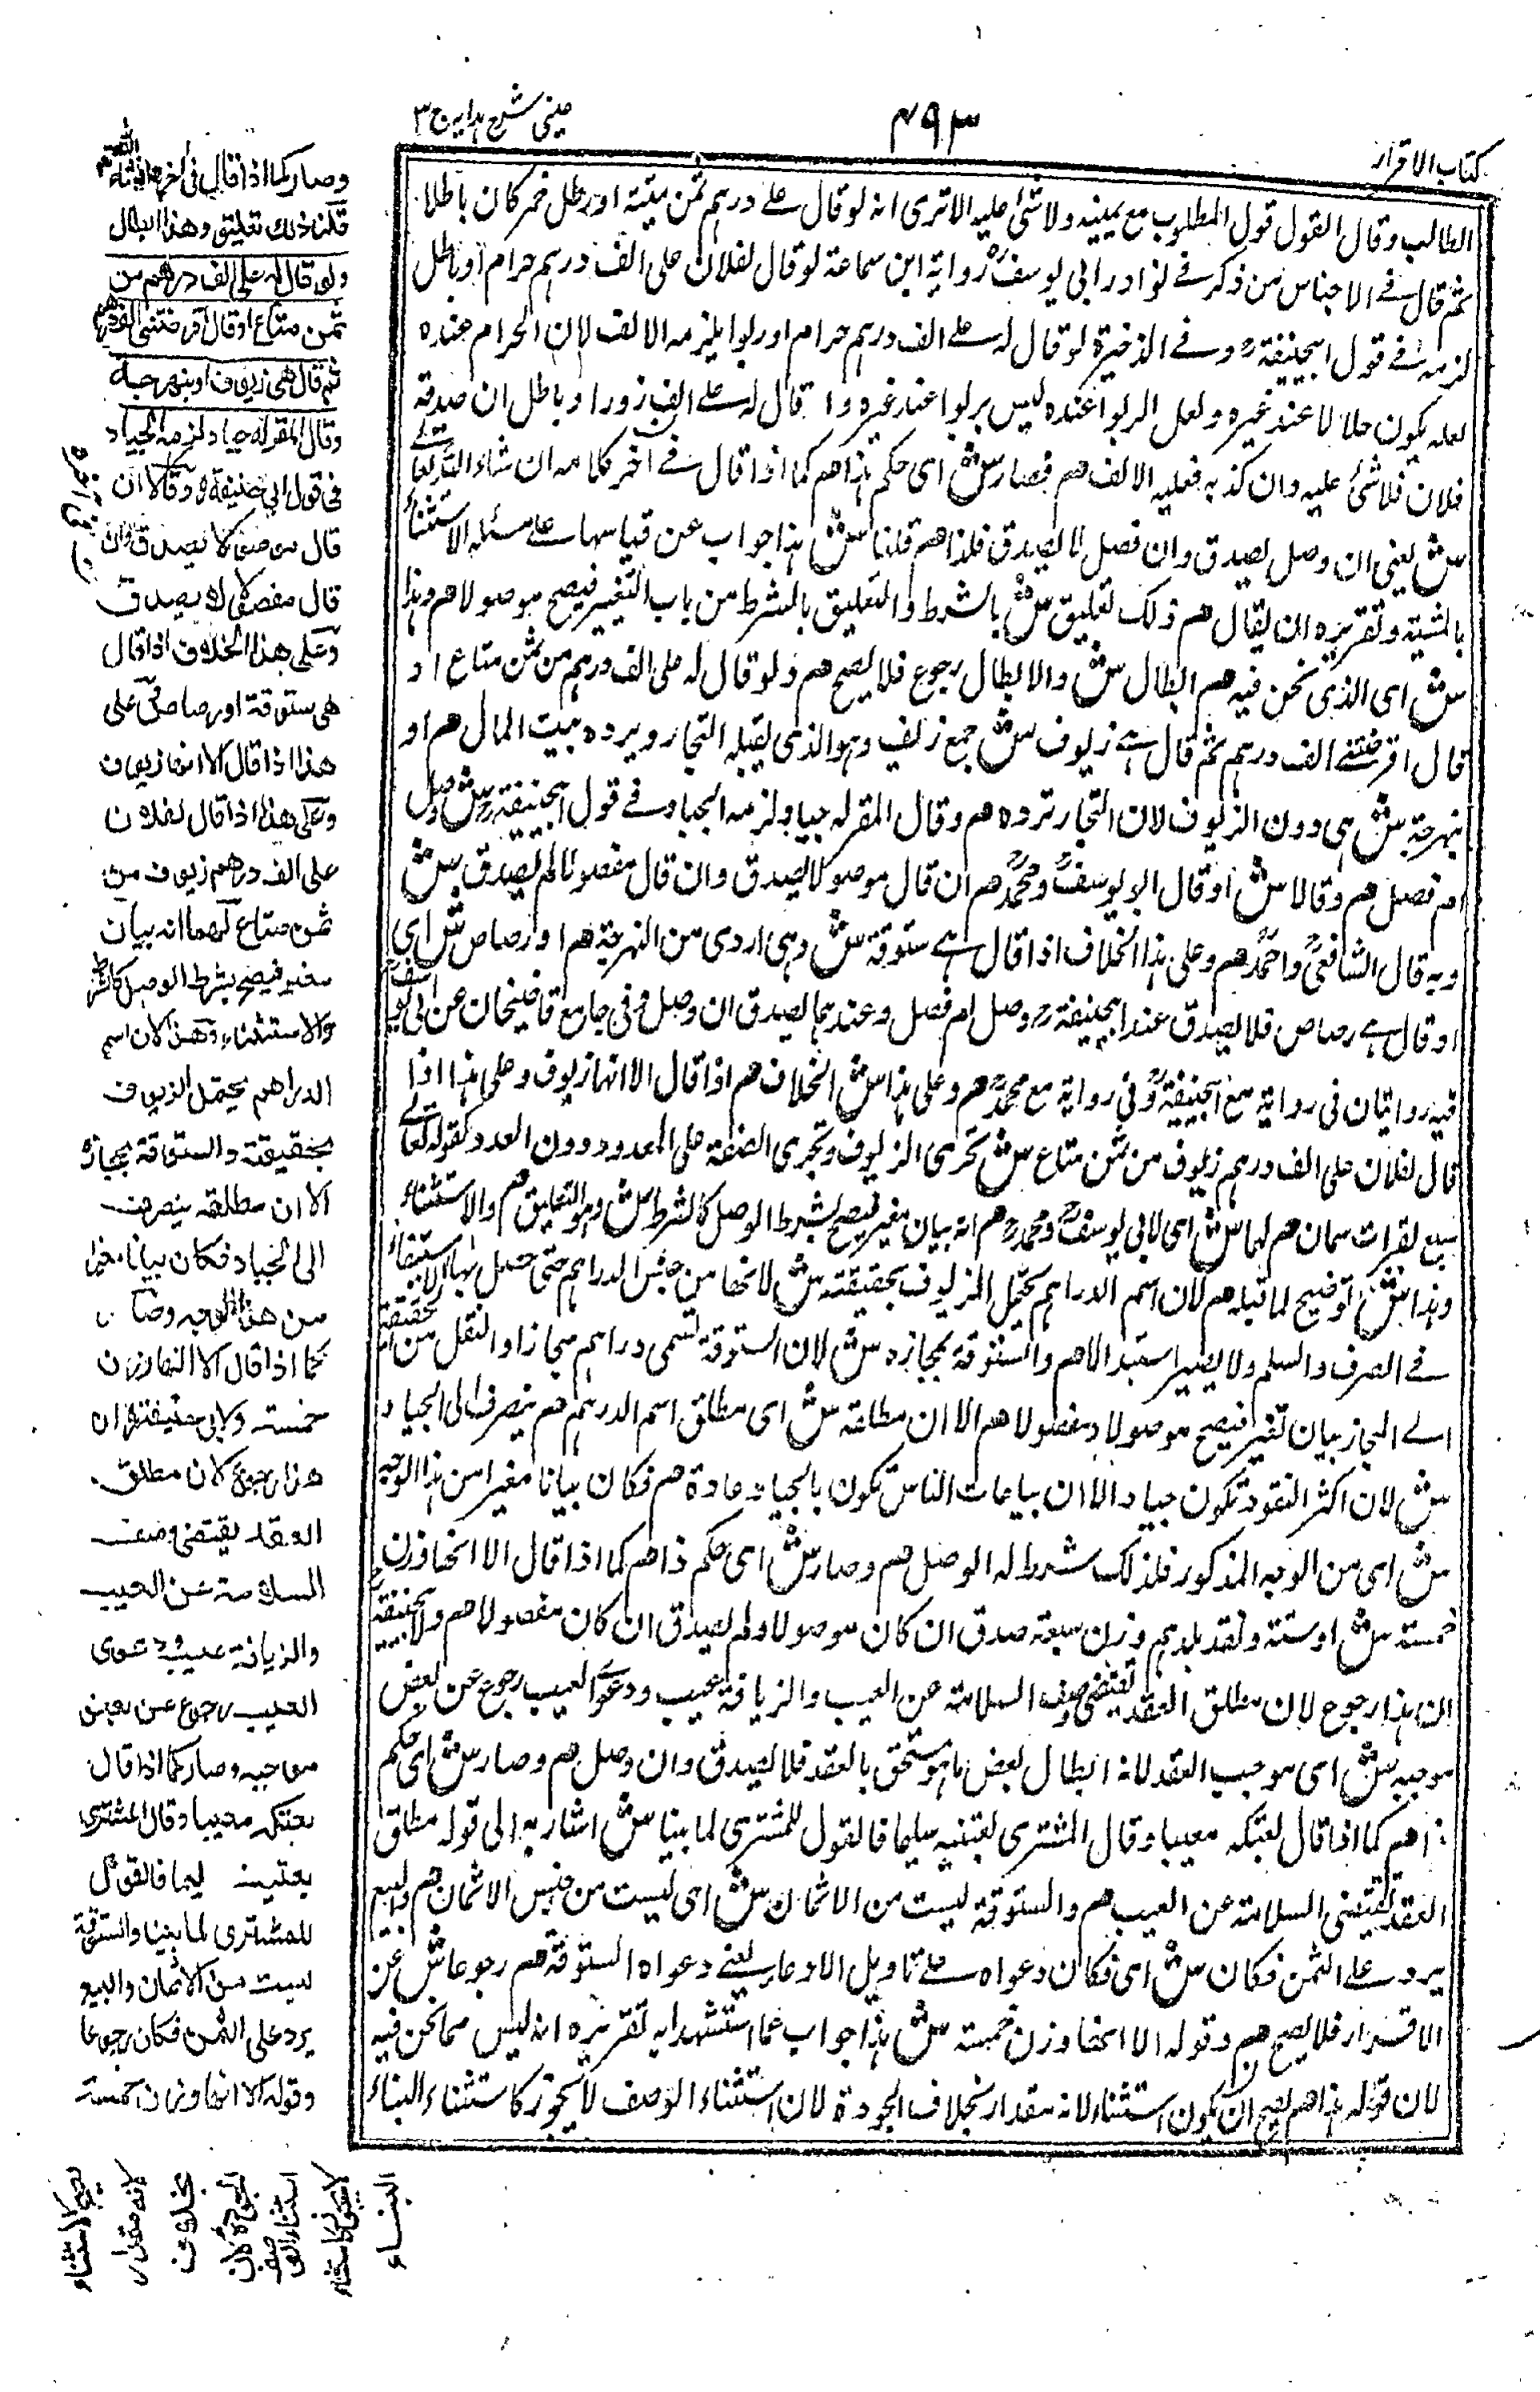 كتاب الاقرار
٧٩٣
عينى شرح هدايه ج ٣
الطالب وقال القول قول المطلوب مع يمينه ولا شئ عليه الا ترى انه لو قال على درهم ثمن ميتة او رطل خمر كان باطلا
ثم قال فى الاجناس من ذكر فى نوادر ابى يوسف رواية ابن سماعة لو قال لفلان على الف درهم حرام او باطل
لزمه فى قول ابيحنيفة وفى الذخيرة لو قال له على الف درهم حرام او ربوا يلزمه الالف لان الحرام عنده
لعله يكون حلالا عند غيره ولعل الربوا عنده ليس بربوا عند غيره وا قال له على الف زورا وباطل ان صدقه
فلان فلا شئ عليه وان كذبه فعليه الالف هم فصار ش اى حكم هذا هم كما اذا قال فى اخر كلامه ان شاء الله تعالى
ش يعنى ان وصل يصدق وان فصل لا يصدق فلذا هم قلنا ش هذا جواب عن قياسهما على مسئلة الاستثناء
بالمشية وتقريره ان يقال هم ذلك تعليق ش بالشرط والتعليق بالشرط من باب التغيير فيصح موصولا هم وهذا
ش اى الذى نحن فيه هم ابطال ش والابطال رجوع فلا يصح هم ولو قال له على الف درهم من ثمن متاع او
قال اقرضتنى الف درهم ثم قال هى زيوف ش جمع زيف وهو الذى يقبله التجار ويرده بيت المال هم او
نبهرجة ش هى دون الزيوف لان التجار ترده هم وقال المقر له جياد لزمه الجياد فى قول ابيحنيفة ش وصل
ام فصل هم وقالا ش او قال ابو يوسف ومحمد هم ان قال موصولا يصدق وان قال مفصولا لم يصدق ش
وبه قال الشافعى واحمد هم وعلى هذا الخلاف اذا قال هى ستوقة ش وهى اردى من النهرجة هم او رصاص ش اى
او قال هى رصاص فلا يصدق عند ابيحنيفة وصل ام فصل وعندهما يصدق ان وصل وفى جامع قاضيخان عن ابى يوسف
فيه روايتان فى رواية مع ابيحنيفة وفى رواية مع محمد هم وعلى هذا ش الخلاف هم اذا قال الا انها زيوف وعلى هذا اذا
قال لفلان على الف درهم زيوف من ثمن متاع ش تجرى الزيوف وتجرى الصفة على المعدود دون العدد كقوله تعالى
سبع بقرات سمان هم لهما ش اى لابى يوسف ومحمد هم انه بيان مغير فيصح بشرط الوصل كالشرط ش وهو التعليق هم والاستثناء
وهذا ش توضيح لما قبله هم لان اسم الدراهم يحتمل الزيوف بحقيقته ش لانها من جنس الدراهم حتى حصل بها الاستيفاء
فى الصرف والسلم ولا يصير استبدالا هم والستوقة بمجازه ش لان الستوقة تسمى دراهم مجازا والنقل من الحقيقة
الى المجاز بيان تغير فيصح موصولا لا مفصولا هم الا ان مطلقه ش اى مطلق اسم الدرهم هم ينصرف الى الجياد
ش لان اكثر النقود تكون جيادا لا ان بياعات الناس تكون بالجياد عادة هم فكان بيانا مغيرا من هذا الوجه
ش اى من الوجه المذكور فلذلك شرط له الوصل هم وصار ش اى حكم ذا هم كما اذا قال الا انها وزن
خمسة ش او ستة ونقد بلدهم وزن سبعة صدق ان كان موصولا ولم يصدق ان كان مفصولا هم ولابيحنيفة
ان هذا رجوع لان مطلق العقد يقتضى وصف السلامة عن العيب والزيافة عيب ودعوى العيب رجوع عن بعض
موجبه ش اى موجب العقد لانه ابطال بعض ما هو مستحق بالعقد فلا يصدق وان وصل هم وصار ش اى حكم
ذا هم كما اذا قال بعتكه معيبا وقال المشترى بعتنيه سليما فالقول للمشترى لما بينا ش اشار به الى قوله مطلق
العقد يقتضى السلامة عن العيب هم والستوقة ليست من الاثمان ش اى ليست من جنس الاثمان هم والبيع
يرد على الثمن فكان ش اى فكان دعواه على تاويل الادعاء يعنى دعواه الستوقة هم رجوعا ش عن
الاقرار فلا يصح هم وقوله الا انها وزن خمسة ش هذا جواب عما استشهدا به تقريره انه ليس مما نحن فيه
لان قوله هذا هم يصح ان يكون استثناء لانه مقدار بخلاف الجودة لان استثناء الوصف لا يجوز كاستثناء البناء
وصار كما اذا قال فى اخره ان شاء الله
قلنا ذلك تعليق وهذا ابطال
ولو قال له على الف درهم من
ثمن متاع او قال اقرضتنى الف درهم
ثم قال هى زيوف او نبهرجة
وقال المقر له جياد لزمه الجياد
فى قول ابى حنيفة وقالا ان
قال موصولا يصدق وان
قال مفصولا لا يصدق
وعلى هذا الخلاف اذا قال
هى ستوقة او رصاص وعلى
هذا اذا قال الا انها زيوف
وعلى هذا اذا قال لفلان
على الف درهم زيوف من
ثمن متاع لهما انه بيان
مغير فيصح بشرط الوصل كالشرط
والاستثناء وهذا لان اسم
الدراهم يحتمل الزيوف
بحقيقته والستوقة بمجازه
الا ان مطلقه ينصرف
الى الجياد فكان بيانا مغيرا
من هذا الوجه وصار
كما اذا قال الا انها وزن
خمسة ولابى حنيفة ان
هذا رجوع لان مطلق
العقد يقتضى وصف
السلامة عن العيب
والزيافة عيب ودعوى
العيب رجوع عن بعض
موجبه وصار كما اذا قال
بعتكه معيبا وقال المشترى
بعتنيه سليما فالقول
للمشترى لما بينا والستوقة
ليست من الاثمان والبيع
يرد على الثمن فكان رجوعا
وقوله الا انها وزن خمسة
يصح استثناء
لانه مقدار
بخلاف
الجودة لان
استثناء الوصف
لا يجوز كاستثناء
البناء